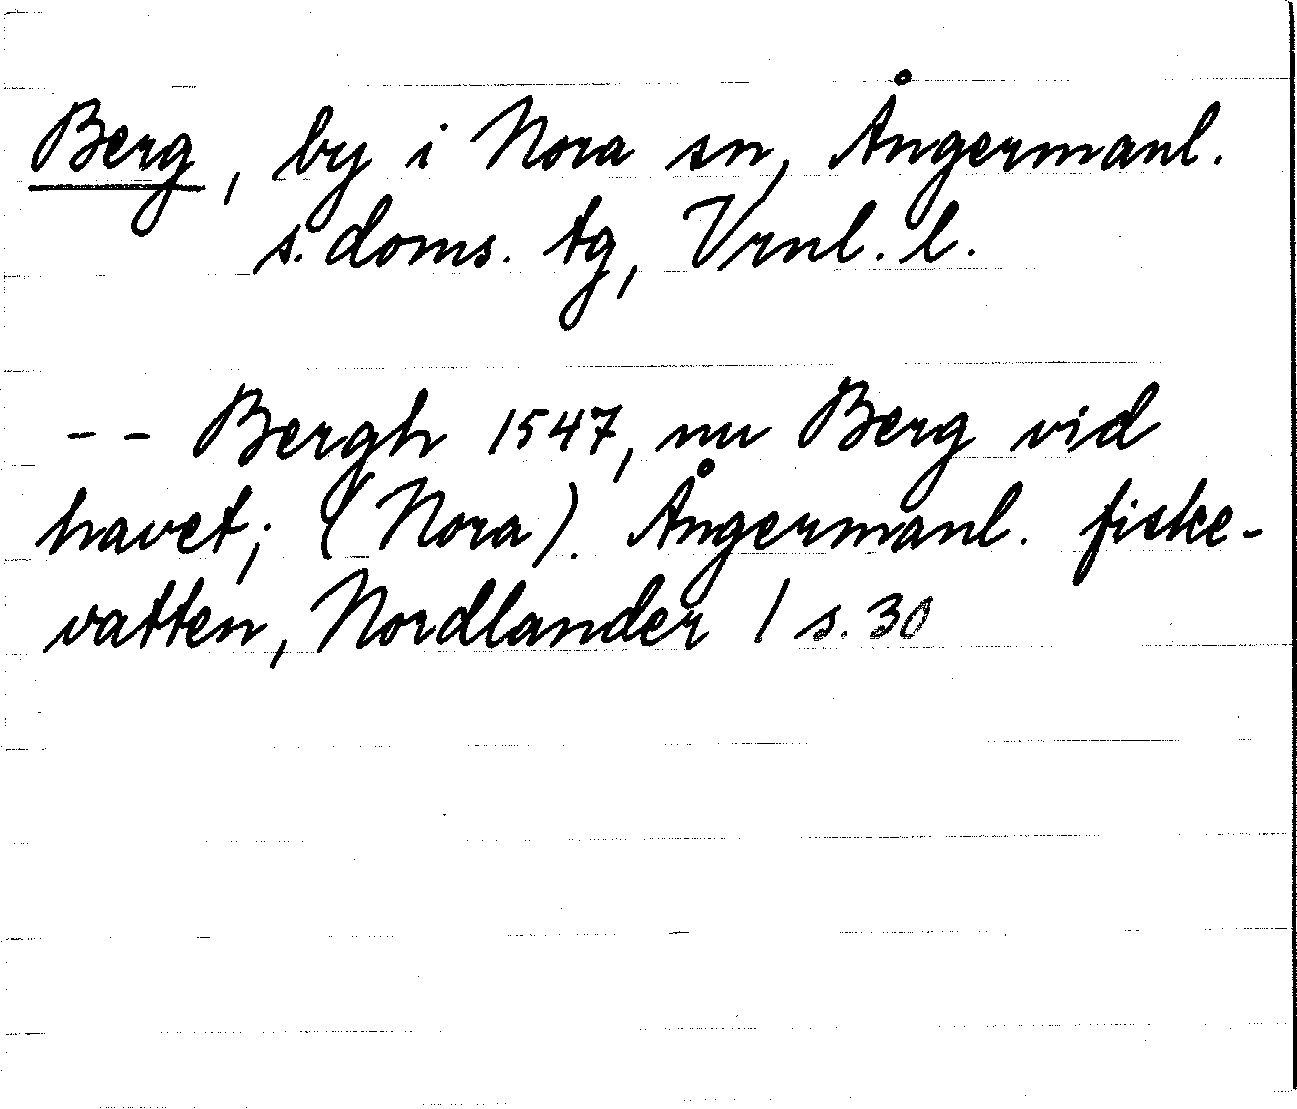 Berg, by i Nora sn, Ångermanl.
s. doms. tg, Vrnl. l.
-- Bergh 1547, nu Berg vid
havet; (Nora). Ångermanl. fiske-
vatten, Nordlander 1 s. 30